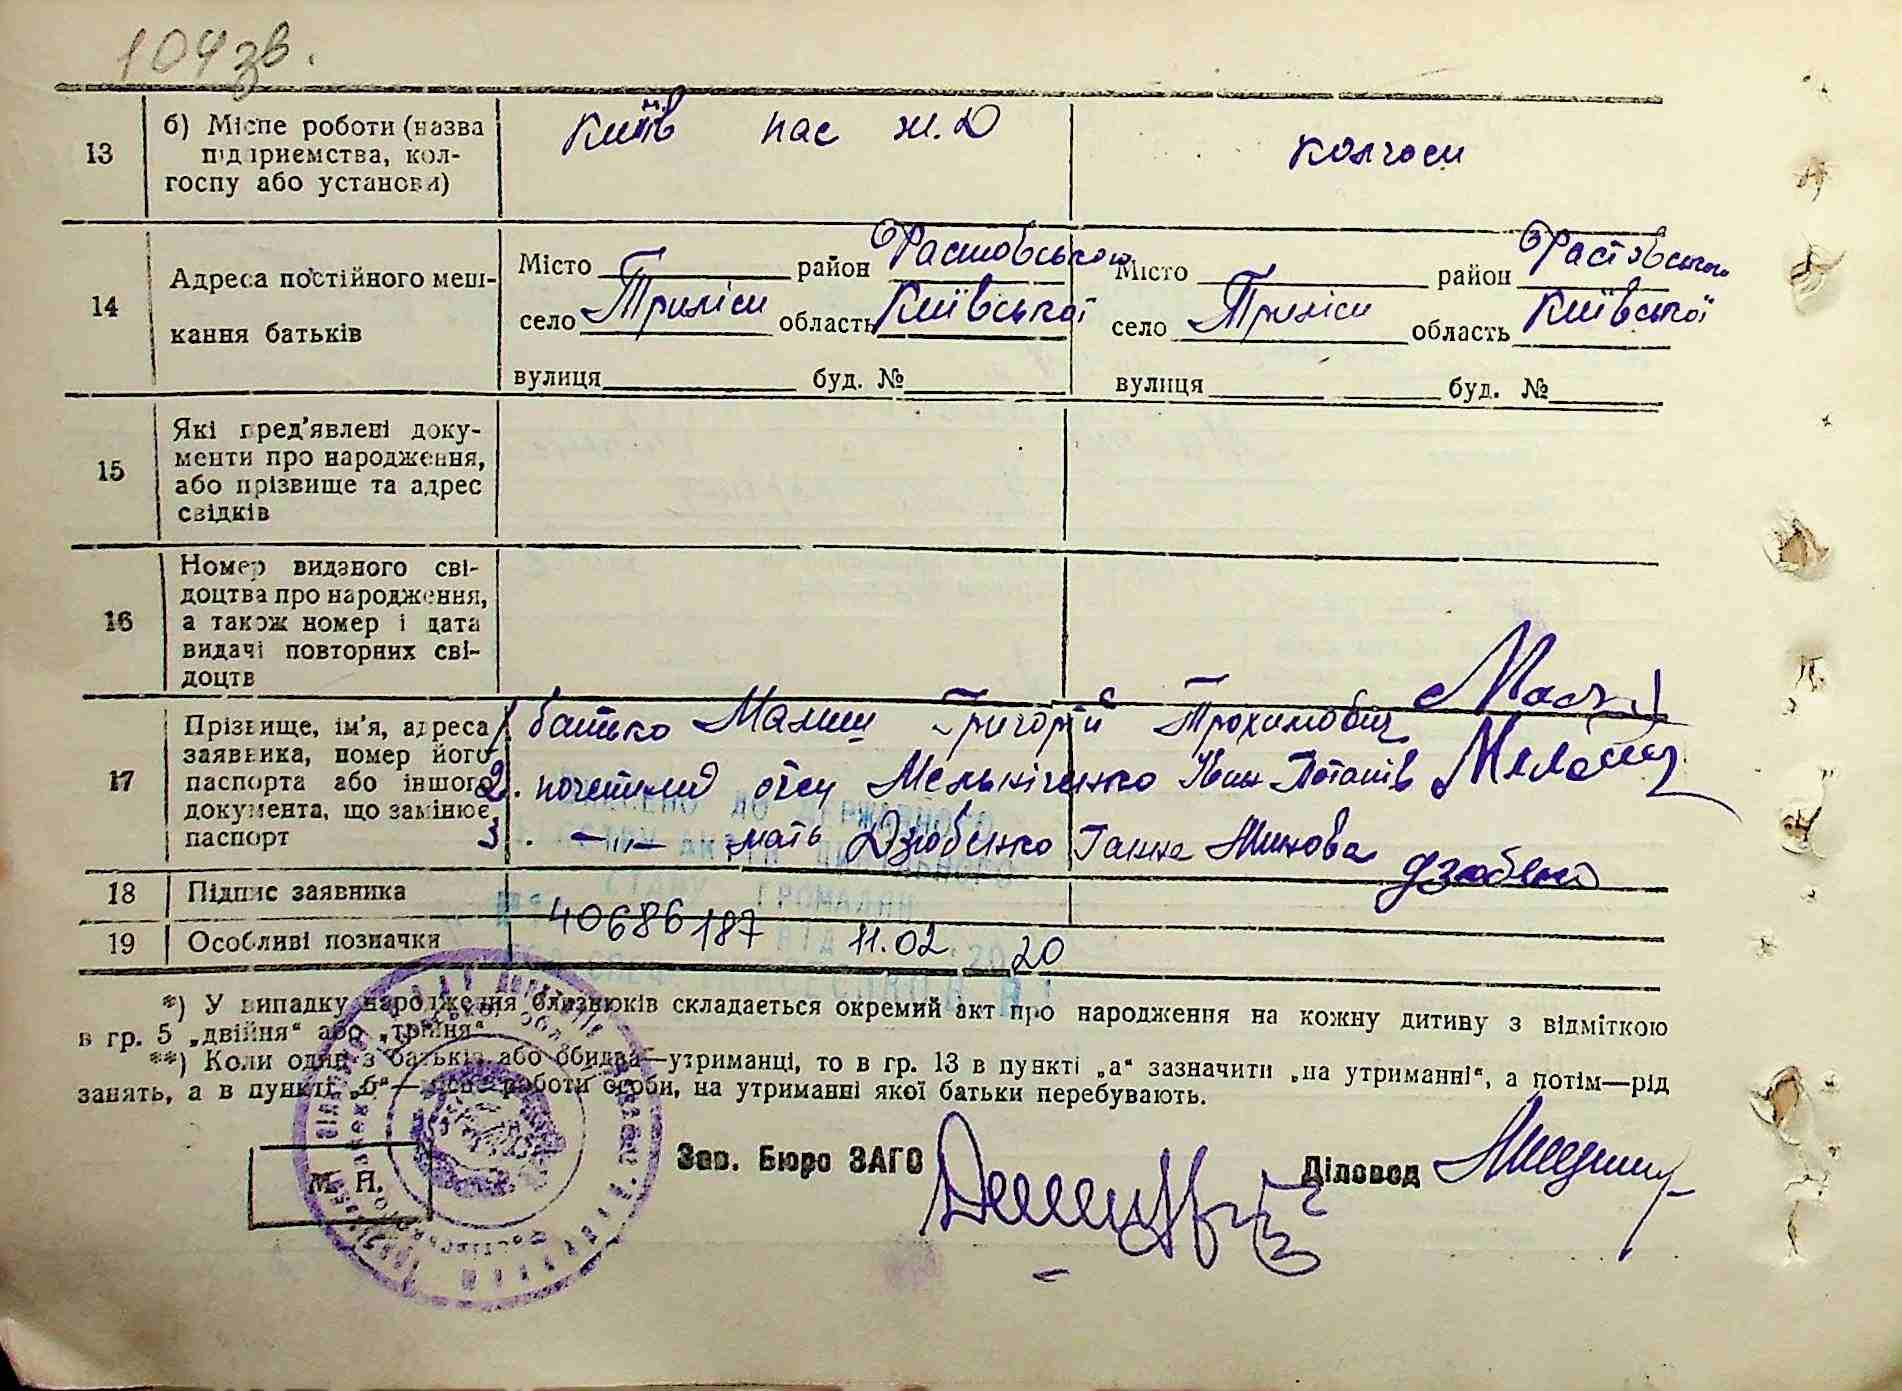 104 зв.
13 б) Місце роботи (назва підприємства, колгоспу або установи) м. Київ пас ж.д колгосп
14 Адреса постійного мешкання батьків
Місто район Фастовського Місто район Фастовського
село Триліси область Київської село Триліси область Київської
вулиця буд. № вулиця буд. №
15 Які пред'явлені документи про народження, або прізвище та адрес свідків
16 Номер виданого свідоцтва про народження, а також номер і дата видачі повторних свідоцтв
17 Прізвище, ім'я, адреса заявника, номер його паспорта або іншого документа, що замінює паспорт
1. батько Малиш Григорій Трохимович
2. отец Мельніченко Іван Потапів
3. мать Дзюбенко Ганна Дзюбенко
18 Підпис заявника
19 Особливі позначки 40686187 11.02 2020
ДО ДЕРЖАВНОГО
СТАНУ ГРОМАДЯН
ВІД
*) У випадку народження близнюків складається окремий акт про народження на кожну дитину з відміткою
в гр. 5 „двійня“ або „трійня“
**) Коли один з батьків або обидва—утриманці, то в гр. 13 в пункті „а“ зазначити „на утриманні“, а потім—рід
занять, а в пункті „б“— місце роботи особи, на утриманні якої батьки перебувають.
Зав. Бюро ЗАГС Діловод
М. П.